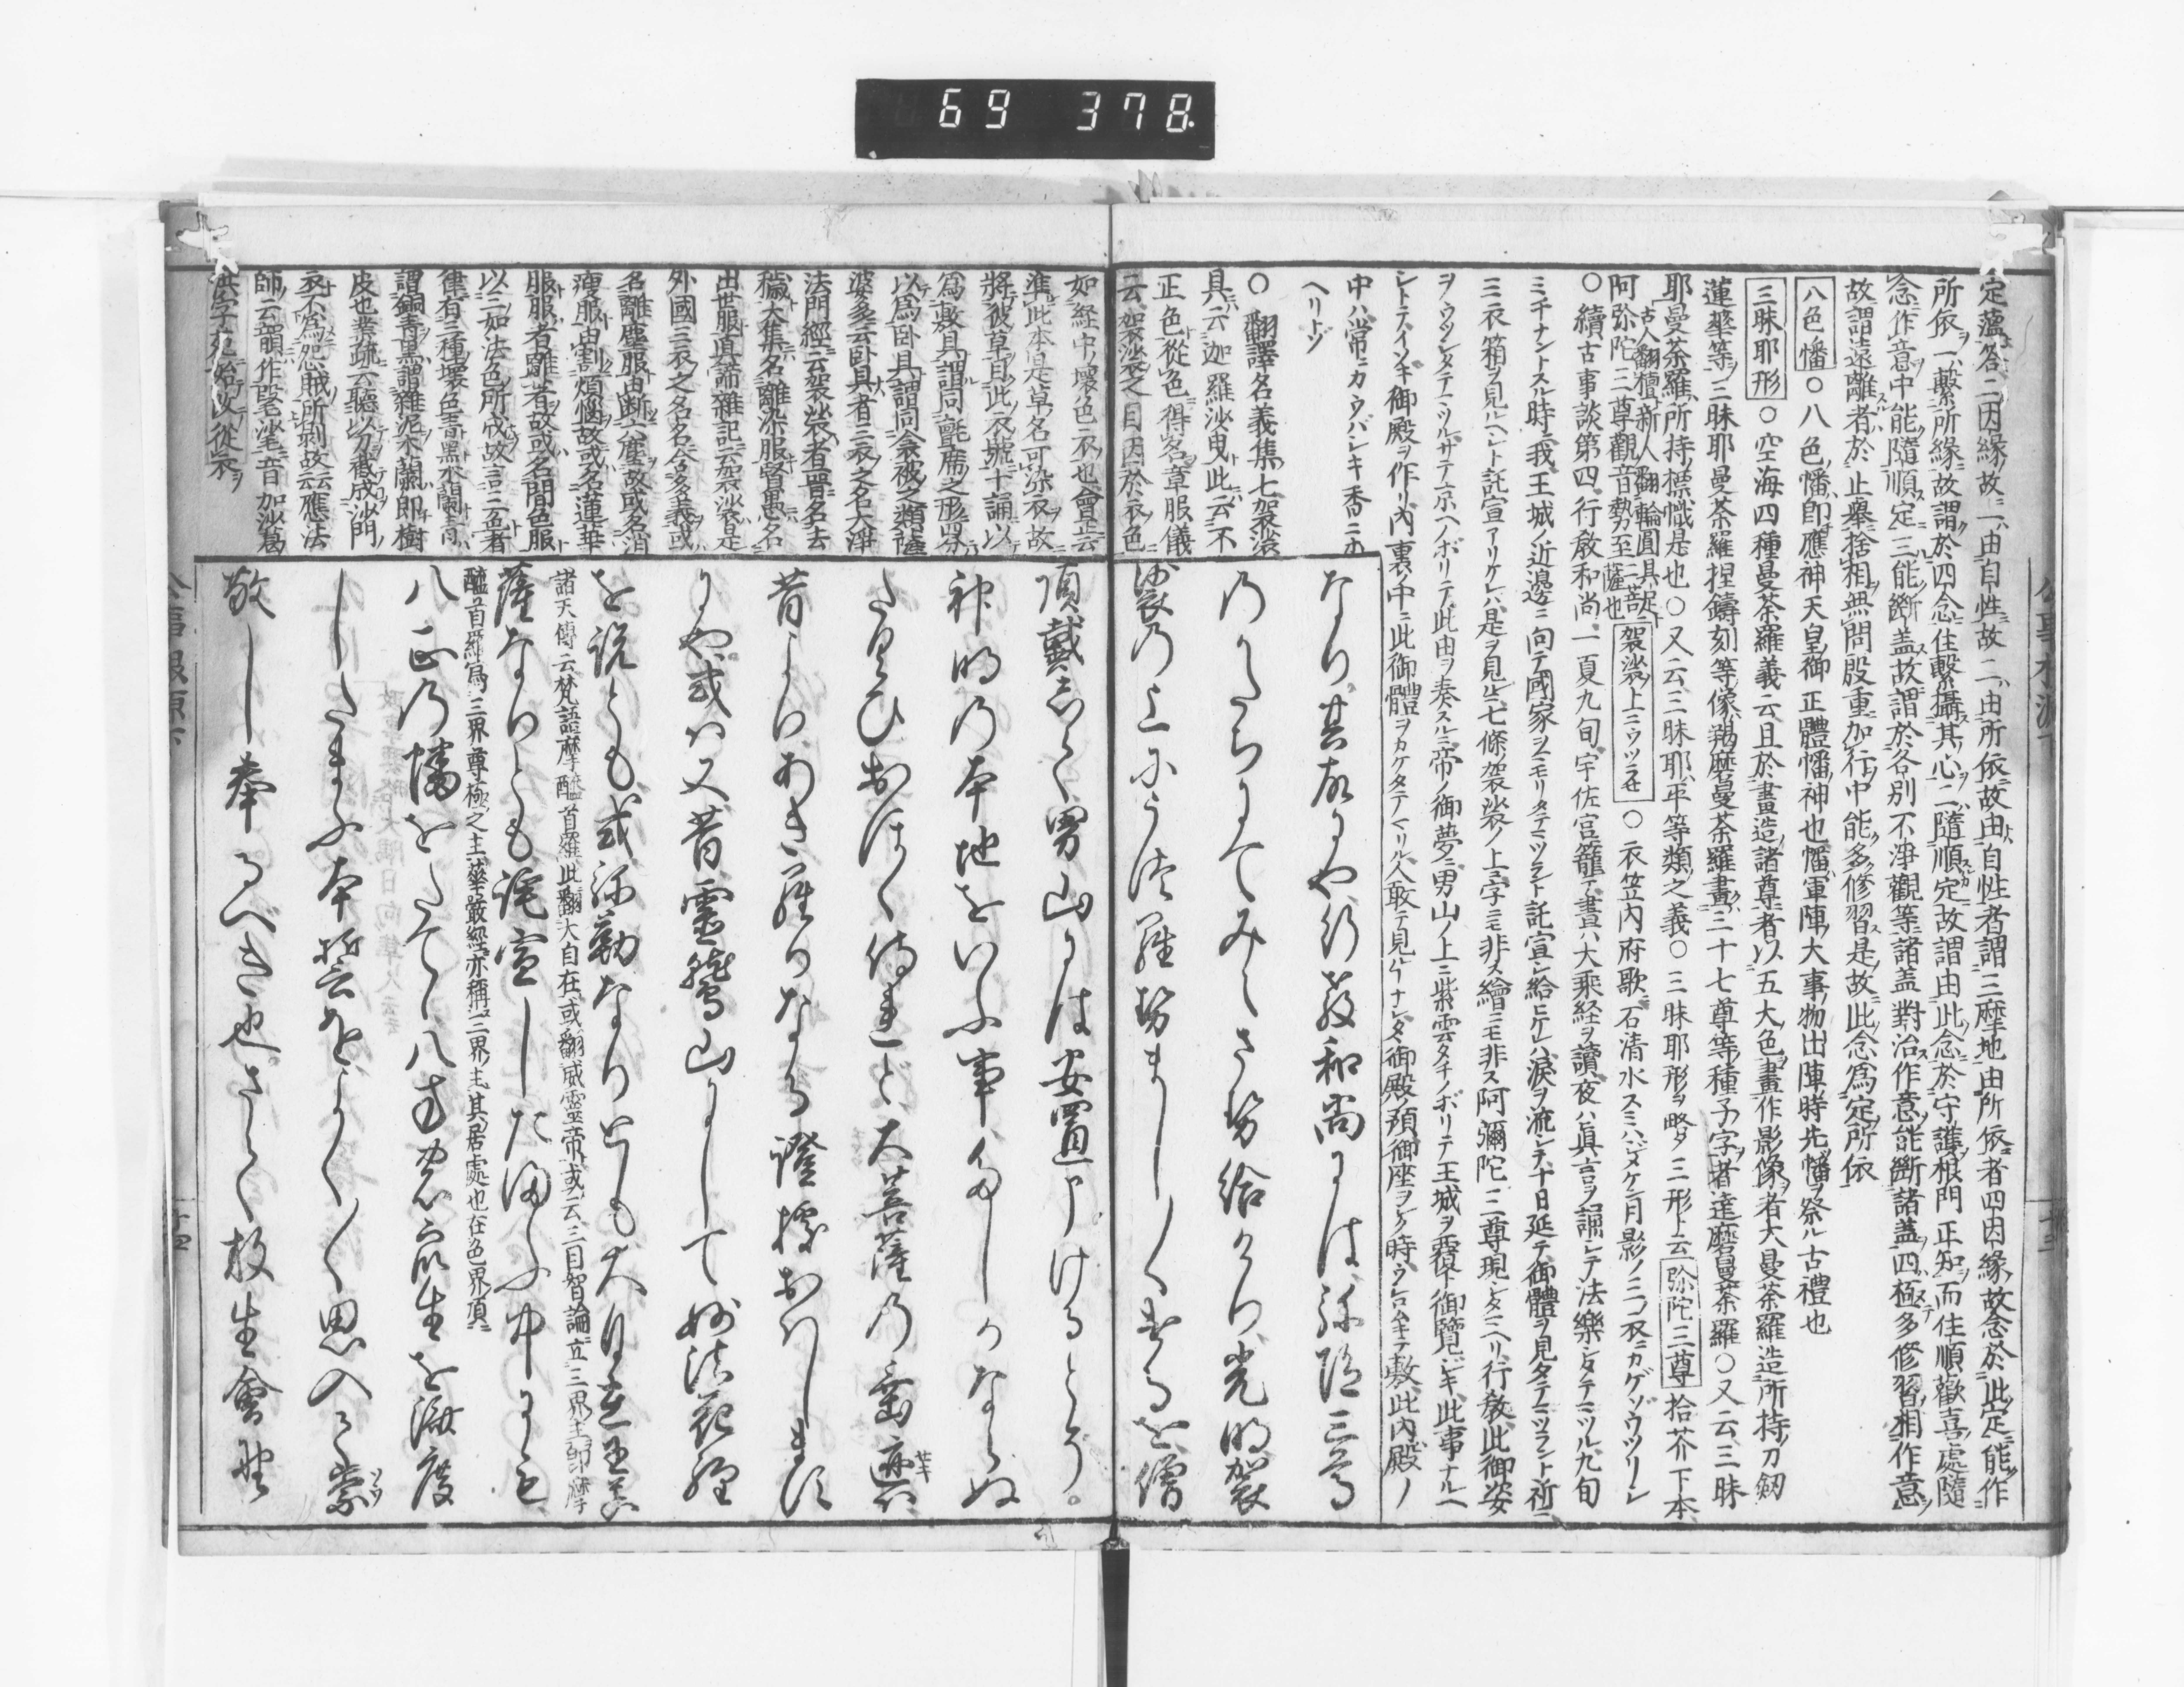 69 378.
定蘊答二因縁故一由自性故二由所依故由自性者謂三摩地由所依者四因縁故念於此定能作
所依一繫所縁故謂於四念住繫攝其心二隨順定故謂由此念於守護根門正知而住順歡喜處隨
念作意中能隨順定三能斷盖故謂於各別不淨觀等諸盖對治作意能斷諸盖四極多修習相作意
故謂遠離者於止擧捨相無間殷重加行中能多修習是故此念爲定所依
八色幡〇八色幡即應神天皇御正體幡神也幡軍陣大事物出陣時先幡ヲ祭ル古禮也
三昧耶形〇空海四種曼荼羅義云且於畫造諸尊者以五大色畫作影像者大曼荼羅造所持刀劔
蓮華等三昧耶曼荼羅捏鑄刻等像羯磨曼荼羅畫三十七尊等種子字者達磨曼荼羅〇又云三昧
耶曼荼羅所持標幟是也〇又云三昧耶平等類之義〇三昧耶形ヲ略シテ三形ト云弥陀三尊拾芥下本
阿弥陀三尊觀音勢至二菩薩也
古人翻檀新人翻輪圓具足
袈裟ノ上ニウツラセ〇衣笠内府歌石清水スミハジメケン月影ノミコロモニカゲゾウツリシ
〇續古事談第四行敎和尚一夏九旬宇佐宮籠テ晝ハ大乘経ヲ讀夜ハ眞言ヲ誦シテ法樂シタテミツル九旬
ミチナントスル時ニ我王城ノ近邊ニ向テ國家ヲマモリタテミツラント託宣シ給ヒケレハ涙ヲ流シテ十日延テ御體ヲ見タテミツラント祈ニ
三衣箱ヲ見ルヘシト託宣アリケレハ是ヲ見ニ七條袈裟ノ上ニ字ニモ非ス繪ニモ非ス阿彌陀三尊現シタミヘリ行敎此御姿
ヲウツシタテミツルサテ京ヘノボリテ此由ヲ奏スルニ帝ノ御夢ニ男山ノ上ニ紫雲タチノボリテ王城ヲ覆ト御覽ジキ此事ナルヘ
シトテイソギ御殿ヲ作リ内裏ノ中ニ此御體ヲカケタテマツル人敢テ見ルナシ御殿ノ預御座ヲシク時ウシロムキテ敷此内殿ノ
中ハ常ニカウバシキ香ニホ
ヘリトゾ
〇翻譯名義集七袈裟
具云迦羅沙曳此云不
正色從色得名章服儀
云袈裟之目因於衣色
なり其故にや行敎和尚には弥陀三尊
のかたちにてみえさせ給けり光明袈
裟の上にうつらせましましけるを僧
如経中壞色衣也會正云
準此本是草名可染衣故
將彼草目此衣號十誦以
爲敷具謂同氈席之形界
以爲卧具謂同衾被之類薩
婆多云卧具者三衣之名大淨
法門經云袈裟者晋名去
穢大集名離染服賢愚名
出世服眞諦雜記云袈裟是
外國三衣之名名含多義或
名離塵服由斷六塵故或名消
痩服由割煩惱故或名蓮華
服服者離著故或名間色服
以三如法色所成故言三色者
律有三種壞色靑黑木蘭靑
謂銅靑黑謂雜泥木蘭即樹
皮也業疏云聽以分截成沙門
衣不爲怨賊所剥故云應法
師云韻作㲚㲚音加沙葛
洪字苑始改從衣
頂戴して男山には安置申けるとそう。
神明の本地をいふ事たしかならぬ
たぐひおほく侍れど大菩薩の垂迹は
昔よりあきらかなる證據おはします
にや或は又昔靈鷲山にして妙法花經
を説とも或弥勒なりとも大自在王菩
諸天傳云梵語摩醯首羅此翻大自在或翻威靈帝或云三目智論立三界主即摩
醯首羅爲三界尊極之主華嚴經亦稱三界主其居處也在色界頂
薩なりとも託宣したまふ中にも
八正の幡をたてて八方の衆生を濟度
したまふ本誓をよくよく思入て崇
敬し奉るべき也さて放生會は